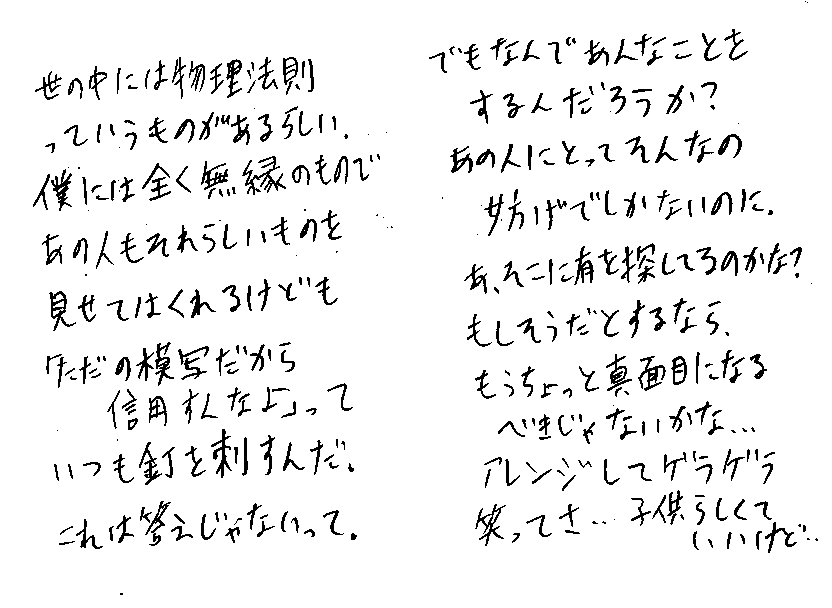 世の中には物理法則
っていうものがあるらしい、
僕には全く無縁のもので
あの人もそれらしいものを
見せてはくれるけども
「ただの模写だから
信用すんなよ」って
いつも釘を刺すんだ。
これは答えじゃないって。
でもなんであんなことを
するんだろうか?
あの人にとってそんなの
妨げでしかないのに。
あ、そこに有を探してるのかな?
もしそうだとするなら、
もうちょっと真面目になる
べきじゃないかな...
アレンジしてゲラゲラ
笑ってさ... 子供らしくて
いいけど..